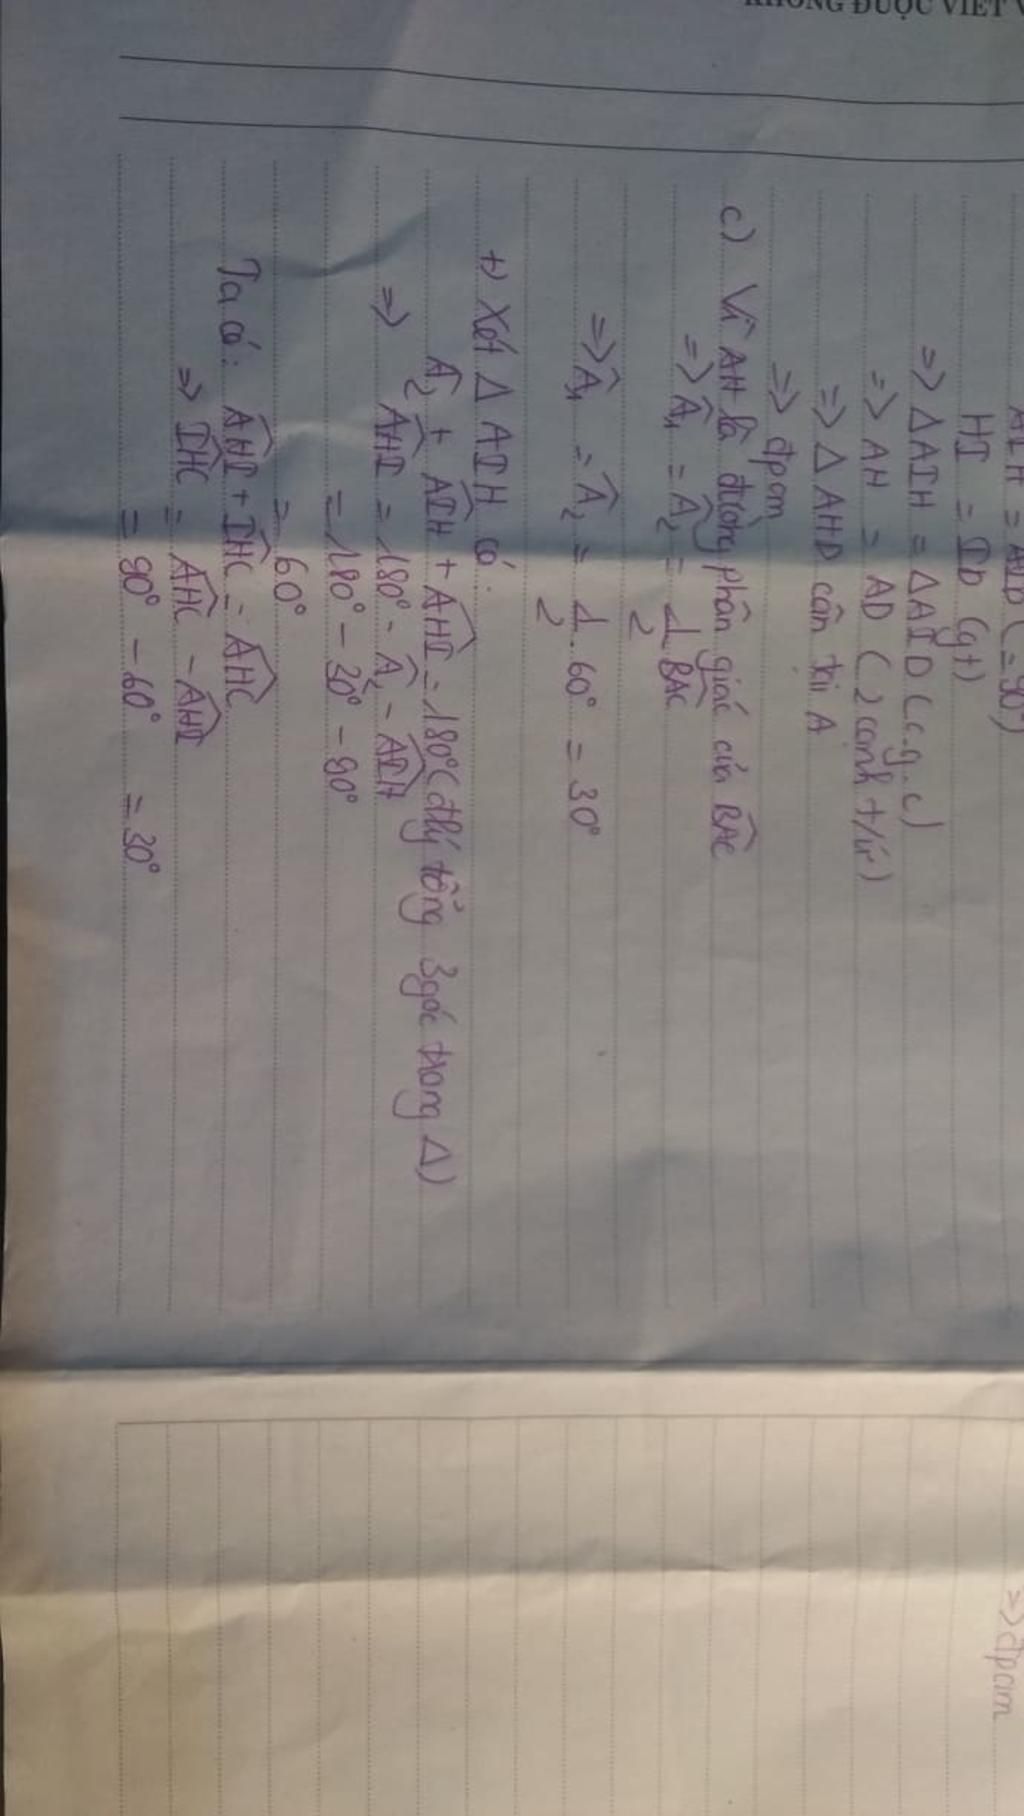 KHÔNG ĐƯỢC VIẾT V
AIH = AID (=90°)
HI = ID (gt)
=> ΔAIH = ΔAID (c.g.c)
=> AH = AD (2 cạnh t/ứ)
=> Δ AHD cân tại A
=> đpcm
c) Vì AH là đường phân giác của \widehat{BAC}
=> \widehat{A}_1 = \widehat{A}_2 = \frac{1}{2} \widehat{BAC}
=> \widehat{A}_1 = \widehat{A}_2 = \frac{1}{2} . 60° = 30°
+) Xét Δ AIH có:
\widehat{A}_2 + \widehat{AIH} + \widehat{AHI} = 180° (đlý tổng 3 góc trong Δ)
=> \widehat{AHI} = 180° - \widehat{A}_2 - \widehat{AIH}
= 180° - 30° - 90°
= 60°
Ta có: \widehat{AHI} + \widehat{IHC} = \widehat{AHC}
=> \widehat{IHC} = \widehat{AHC} - \widehat{AHI}
= 90° - 60° = 30°
=> đpcm